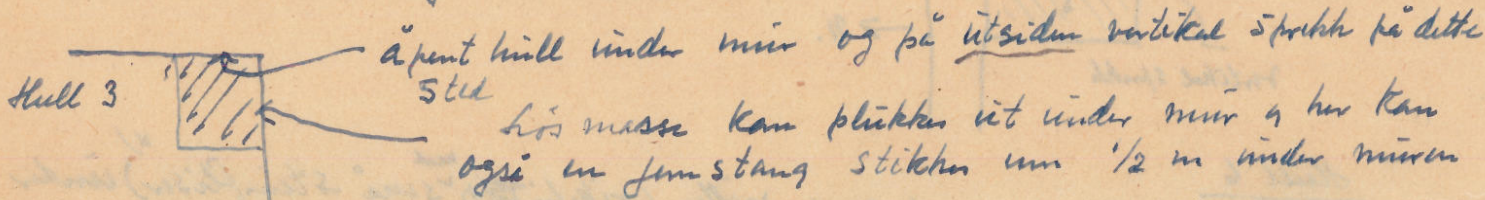 åpent hull under mur og på utsiden vertikal sprekk på dette
Hull 3
sted
Løs masse kan plukkes ut under mur og her kan
også en jernstang stikkes inn 1/2 m under muren